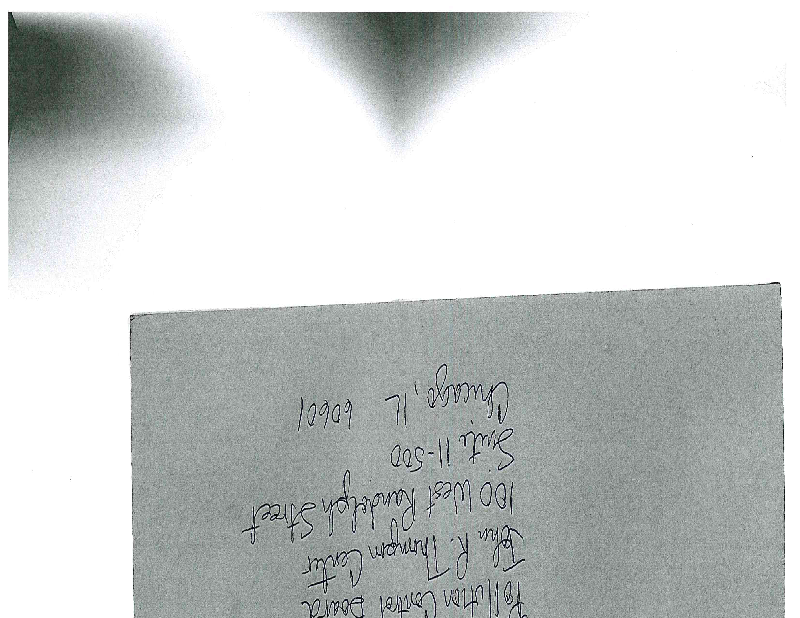 Pollution Control Board
John R. Thompson Center
100 West Randolph Street
Suite 11-500
Chicago, IL 60601